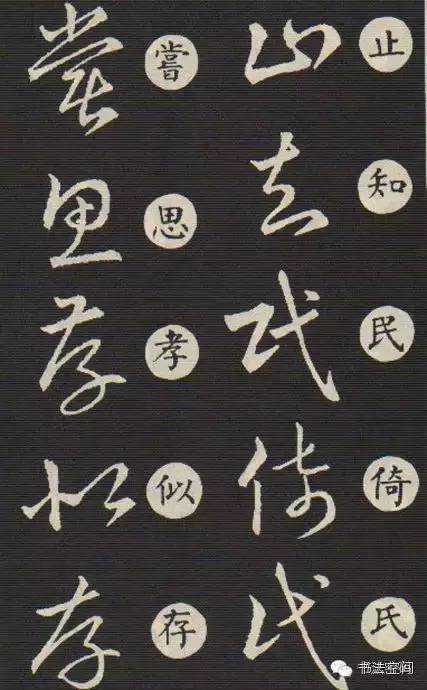 止知民倚氏
止知民倚氏
嘗思孝似存
嘗思孝似存
书法空间